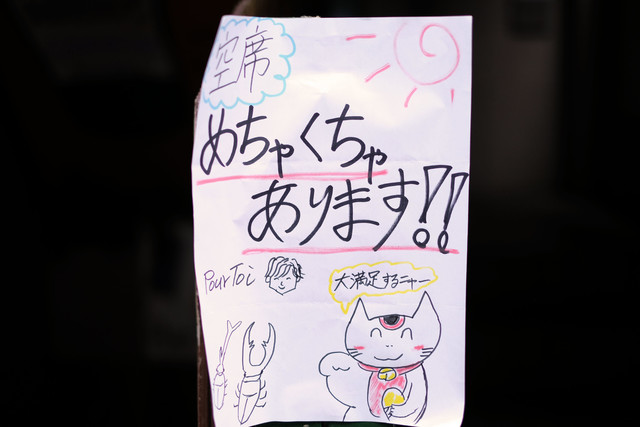 空席
めちゃくちゃ
あります!!
Pour Toi
大満足するニャー